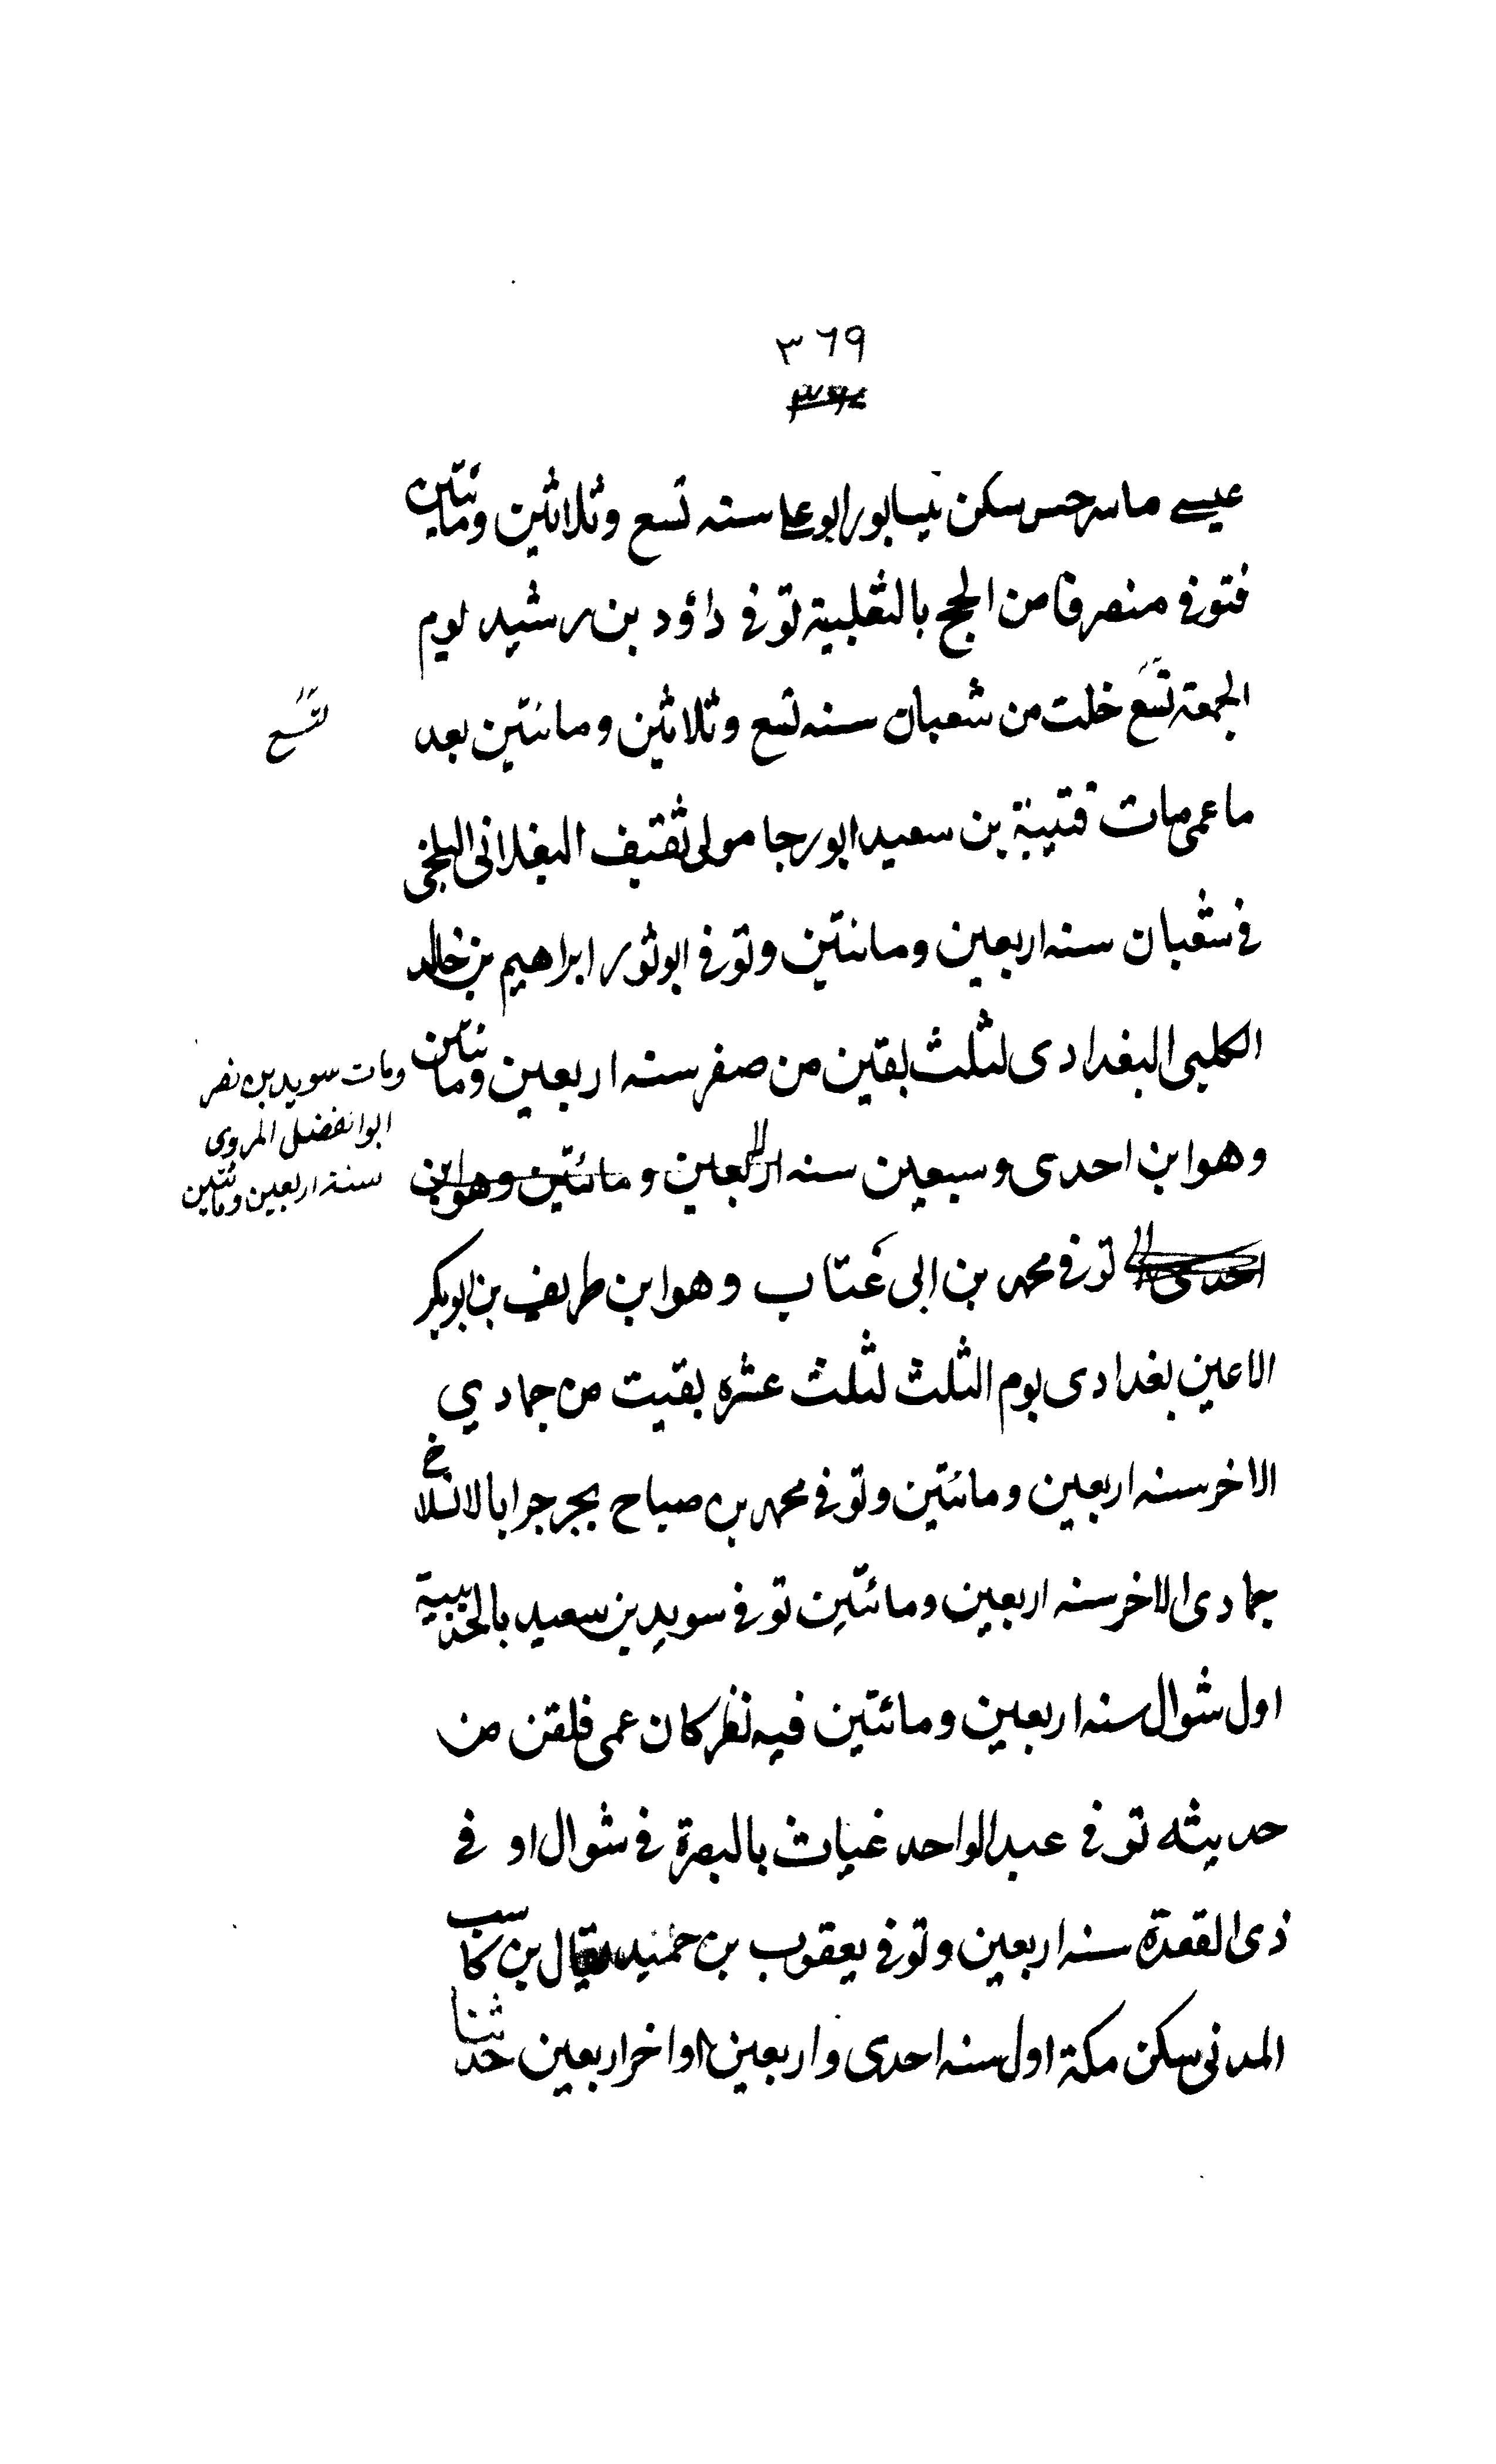 ٣٦٩
عيسے ماسرجس سكن نيسابور ابو علي سنه تسع وثلاثين ومائتين
فتوفى منصرفا من الحج بالثعلبية توفى داؤد بن رشيد يوم
الجمعة تسع خلت من شعبان سنه تسع وثلاثين ومائتين بعد
لتسع
ما عمى مات قتيبة بن سعيد ابو رجا مولى ثقيف البغلانى البلخى
فى شعبان سنه اربعين ومائتين وتوفى ابو ثور ابراهيم بن خالد
الكلبى البغدادى لثلث بقين من صفر سنه اربعين ومائتين
ومات سويد بن نصر
ابو الفضل المروى
سنة اربعين ومائتين
وهو ابن احدى وسبعين سنه اربعين ومائتين وهو ابن
احدى توفى محمد بن ابى عتاب وهو ابن طريف بن ابو بكر
الاعين بغدادى يوم الثلث لثلث عشره بقيت من جمادي
الاخر سنه اربعين ومائتين وتوفى محمد بن صباح بجرجرايا لانسلاخ
جمادى الاخر سنه اربعين ومائتين توفى سويد بن سعيد بالحديبية
اول شوال سنه اربعين ومائتين فيه نظر كان عمى فلقن من
حديثه توفى عبد الواحد غياث بالبصرة فى شوال او فى
ذى القعدة سنه اربعين وتوفى يعقوب بن حميد يقال بن كاسب
المدنى سكن مكة اول سنه احدى واربعين او اخر اربعين حدثنا